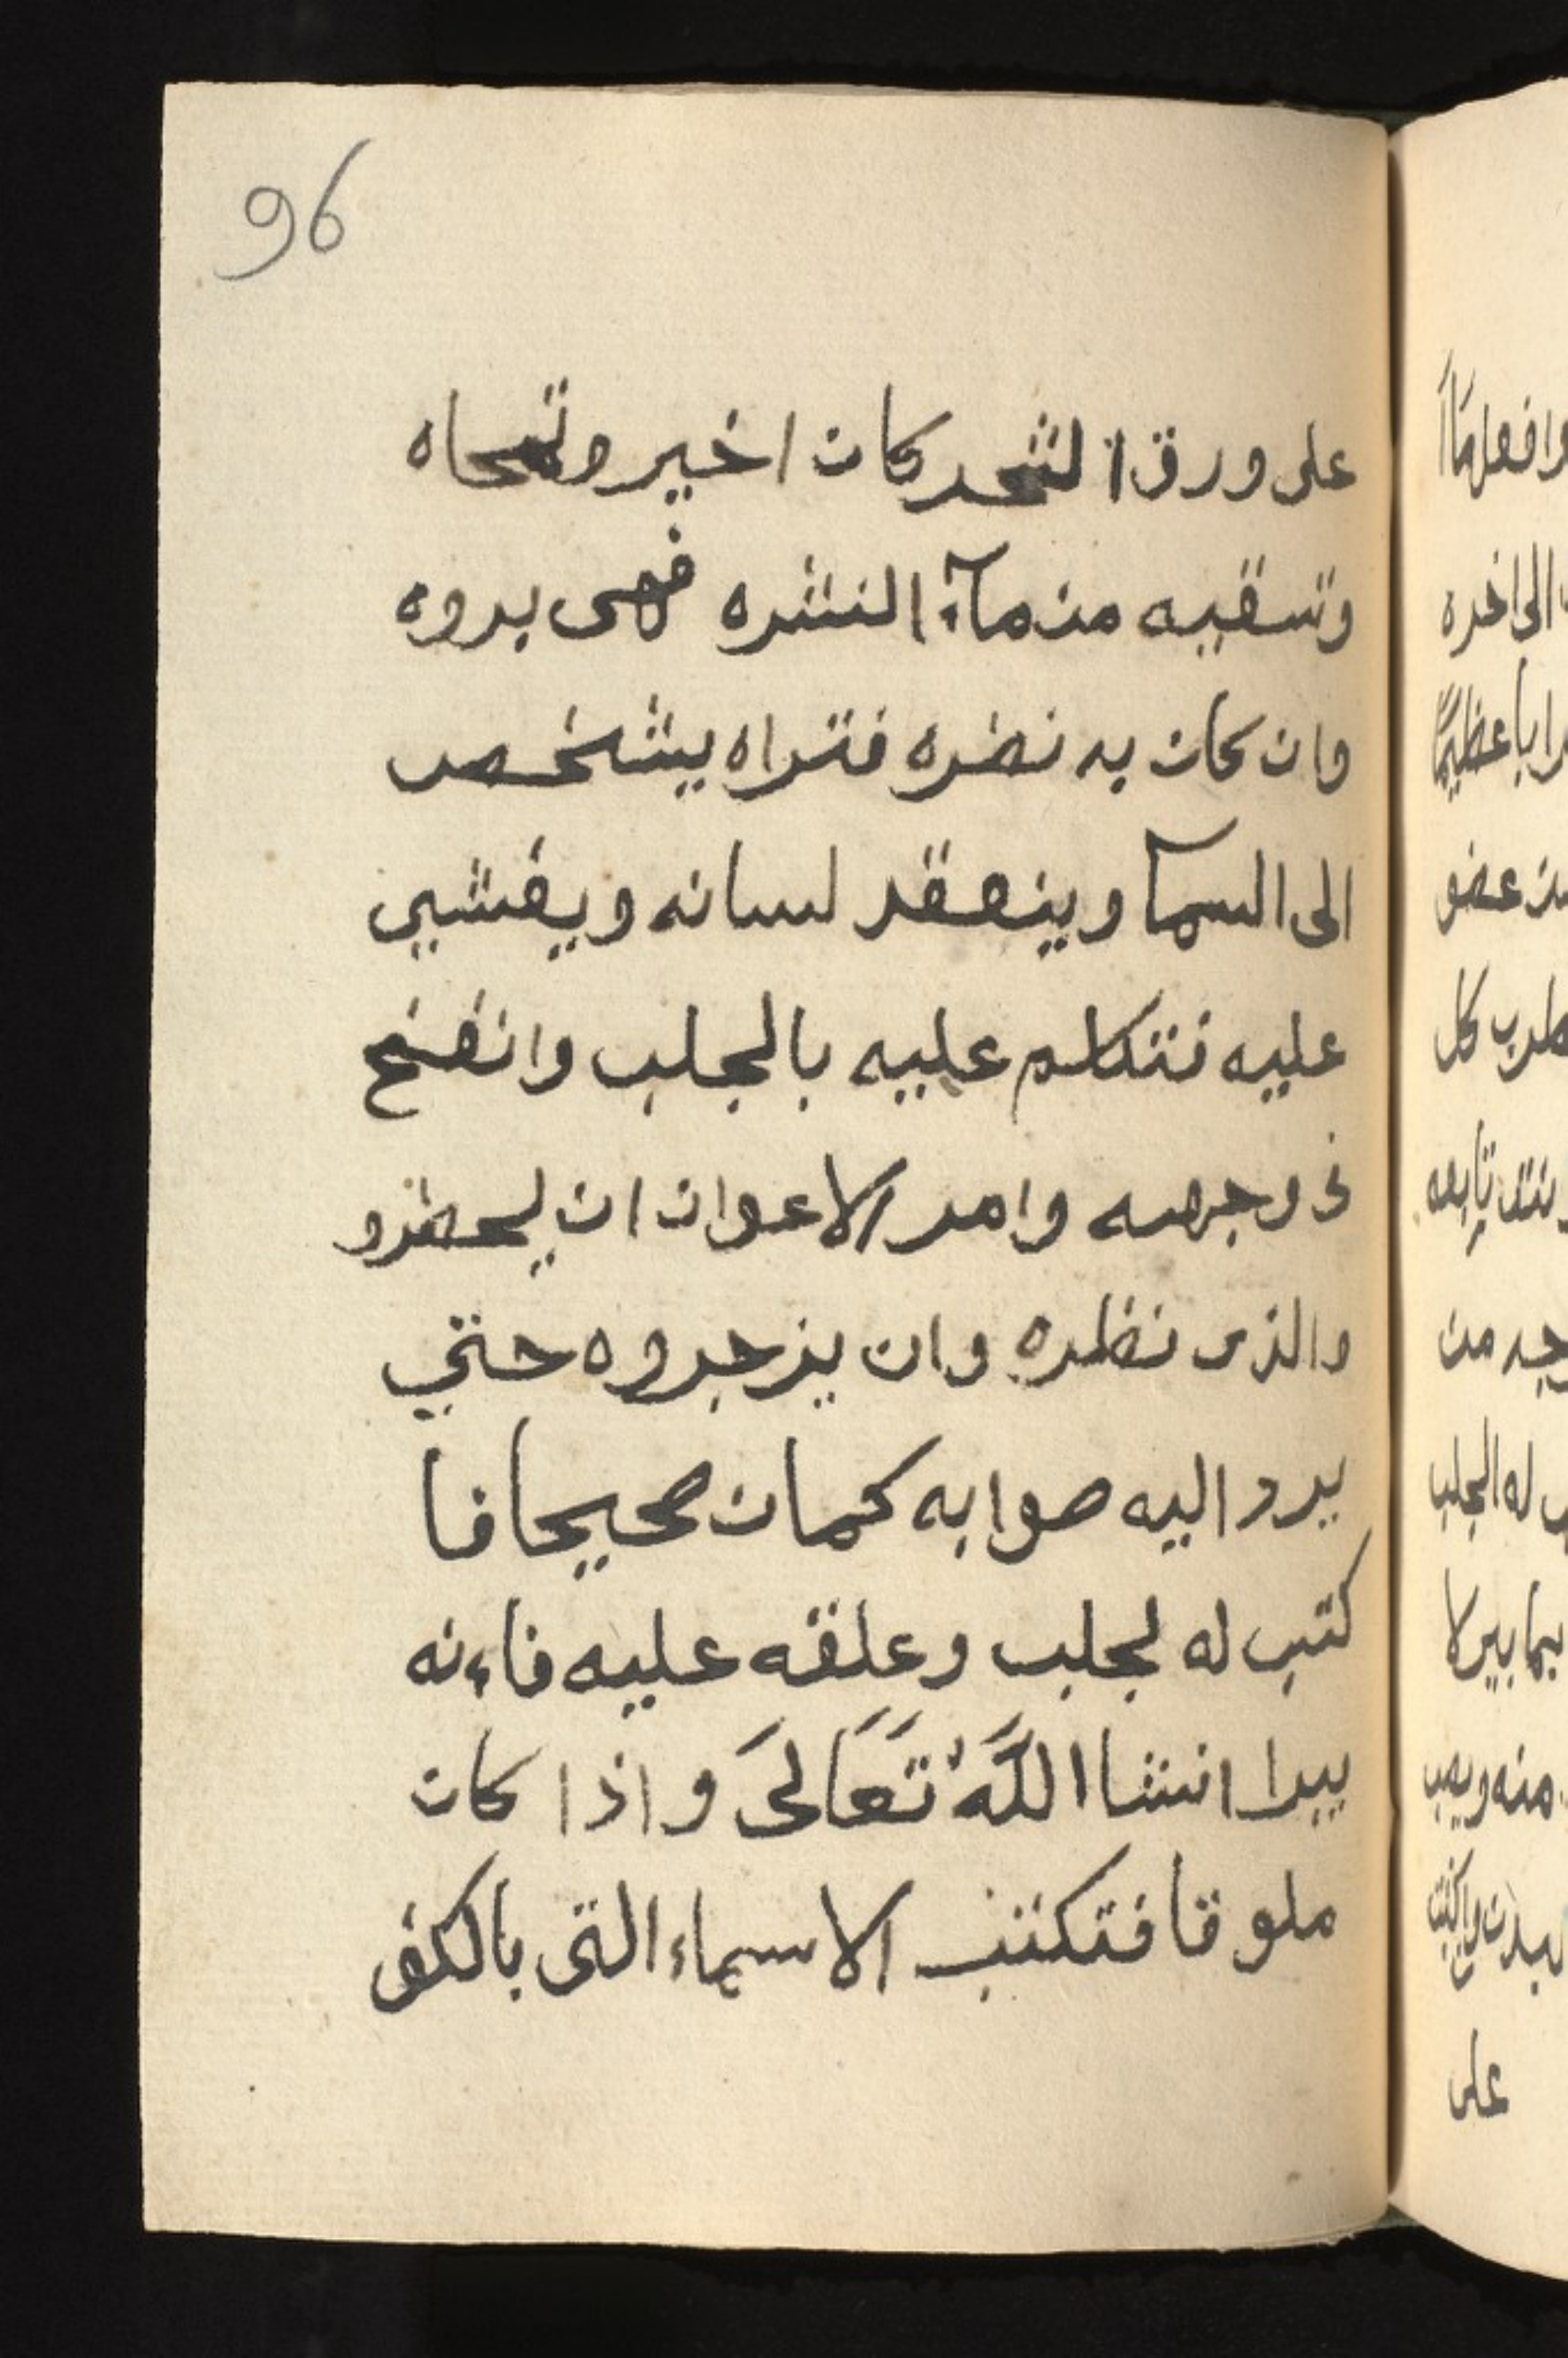 96
على ورق الشجر كان اخير وتمحاه
وتسقيه من مآء النشره فهى بروه
وان كان به نضره فتراه يشخص
الى السمآ وينعقد لسانه ويغشي
عليه فتتكلم عليه بالجلب وانفخ
فى وجهه وامر الاعوان ان يحضرو
والذى نظره وان يزجروه حتي
يرد اليه صوابه كمان صحيحا فا
كتب له لجلب وعلقه عليه فاءنه
يبرا انشا اللَّهُ تَعَالىَ واذا كان
ملوقا فتكتب الاسماء التى بالكف
الى اخره
من عضو
كل
وجه من
له الجلب
على